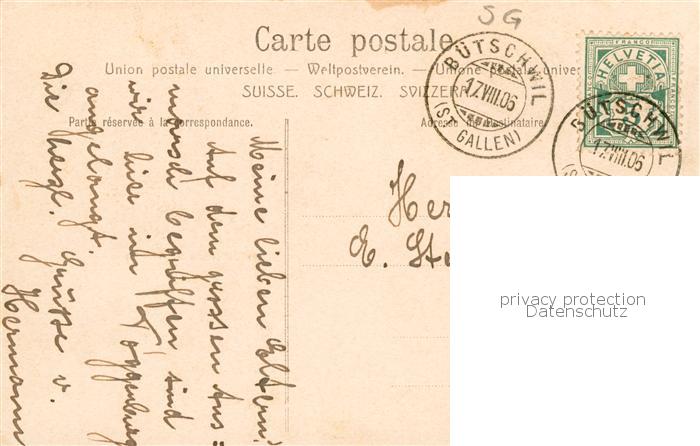 SG
Carte postale
Union postale universelle. — Weltpostverein. — Unione postale univer
SUISSE. SCHWEIZ. SVIZZERA.
Partie réservée à la correspondance.
Adresse du destinataire
BÜTSCHWIL
17.VIII.06
(ST. GALLEN)
FRANCO
HELVETIA
5
BÜTSCHWIL
17.VIII.06
Meine lieben Eltern!
Auf dem grossen Aus=
marsch begriffen sind
wir hier im Toggenburg
angelangt.
Die herzl. Grüsse v.
Hermann
Her
E. St
privacy protection
Datenschutz